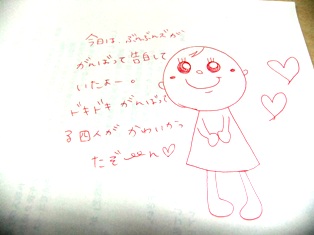 今日は、ぶんぶんズが
がんばって告白して
いたぁー。
ドキドキがんばって
る四人がかわいかっ
たぞーん♡